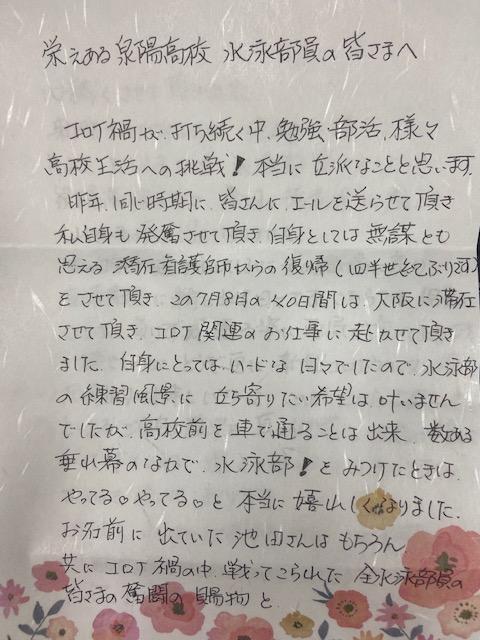 栄えある泉陽高校 水泳部員の皆さまへ
コロナ禍が打ち続く中、勉強、部活、様々
高校生活への挑戦！本当に立派なことと思います。
昨年、同じ時期に、皆さんに、エールを送らせて頂き
私自身も発奮させて頂き、自身としては無謀とも
思える潜在看護師からの復帰(四半世紀ぶりです)
をさせて頂き、この7月8月の40日間は、大阪に滞在
させて頂き、コロナ関連のお仕事に赴かせて頂き
ました。自身にとっては、ハードな日々でしたので、水泳部
の練習風景に立ち寄りたい希望は、叶いません
でしたが、高校前を車で通ることは出来、数ある
垂れ幕のなかで、水泳部！をみつけたときは、
やってる♡やってる♡と本当に嬉しくなりました。
お名前に出ていた池田さんはもちろん、
共にコロナ禍の中、戦ってこられた全水泳部員の
皆さまの奮闘の賜物と、